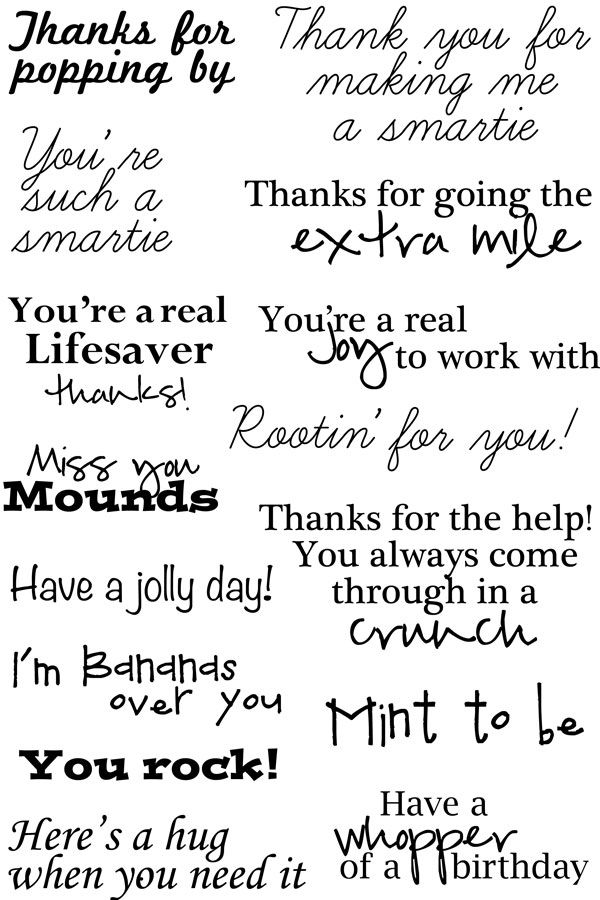 Thanks for
popping by
Thank you for
making me
a smartie
You're
such a
smartie
Thanks for going the
extra mile
You're a real
Lifesaver
thanks!
You're a real
Joy to work with
Rootin' for you!
Miss you
Mounds
Thanks for the help!
You always come
through in a
crunch
Have a jolly day!
I'm Bananas
over you
Mint to be
You rock!
Have a
whopper
of a birthday
Here's a hug
when you need it